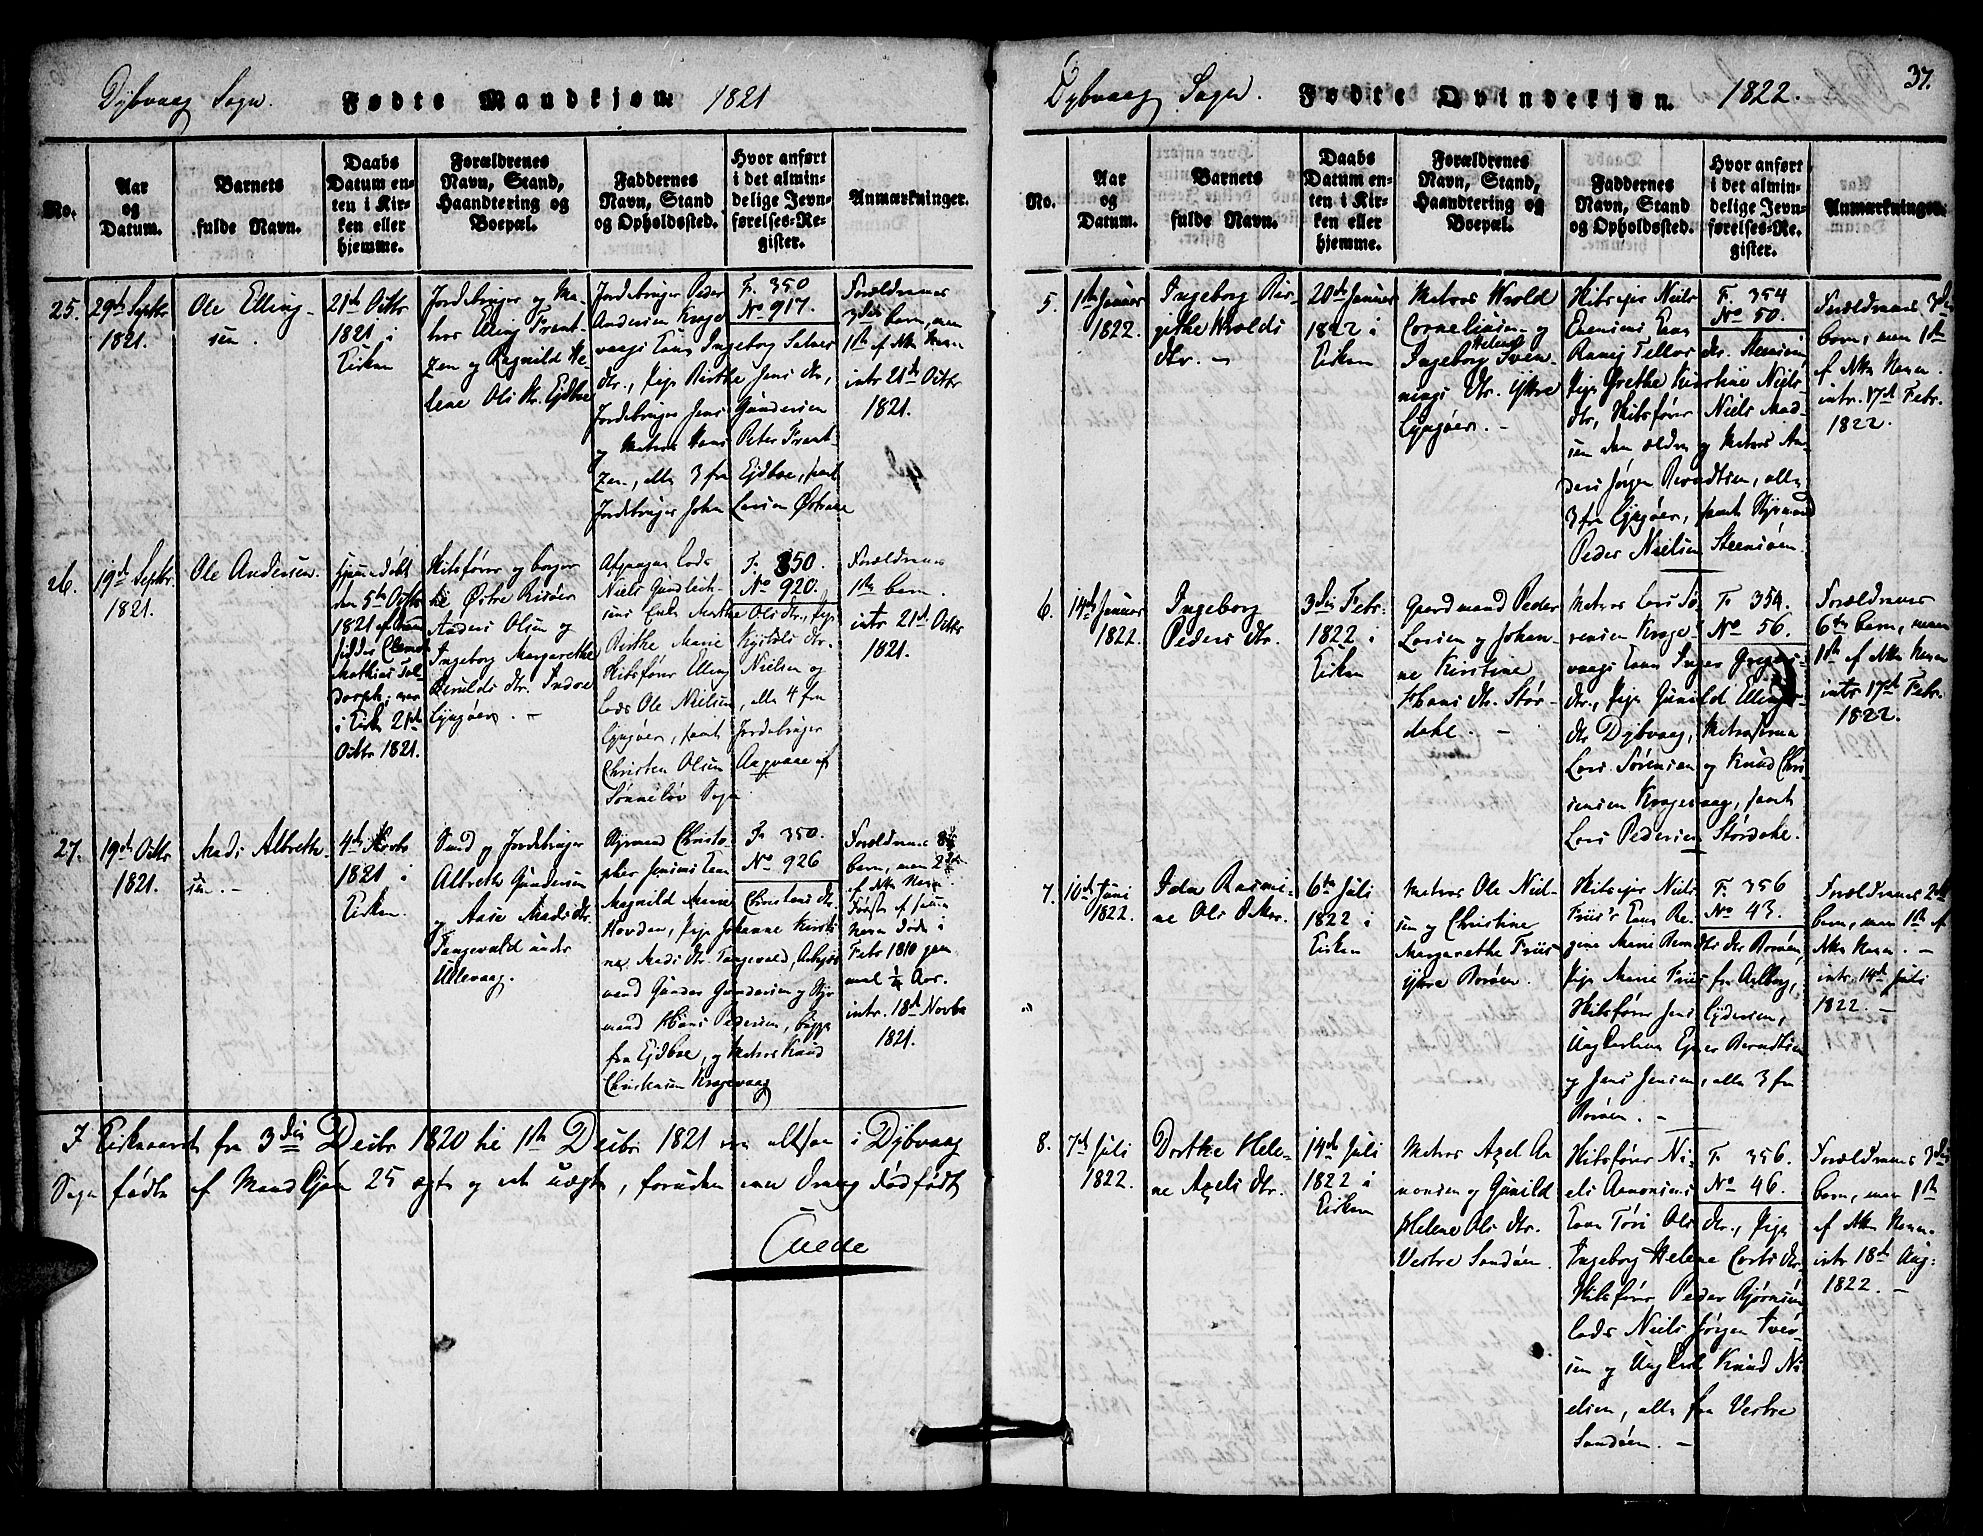 Dÿbvaag Sogn. Fødte Mandkjøn. 1821
No.
Aar
og
Datum.
Barnets
fulde Navn.
Daabs
Datum en-
ten i Kir-
ken eller
hjemme.
Forældrenes
Navn, Stand,
Haandtering og
Boepæl.
Faddernes
Navn, Stand
og Opholdssted.
Hvor anført
i det almin-
delige Jevn-
førelses-Re-
gister.
Anmærkninger.
25.
29de Septbr
1821.
Ole Elling-
sen.
21de Octbr
1821 i
Kirken
Jordebruger og Ma-
tros Elling Frant-
zen og Ragnild He-
lene Ols Dr. Ejdboe
Jordebruger Peder
Andersen Krogs-
vaags Kone Ingeborg
Dr., Pige Birthe Jens Dr,
Jordebruger Jens Gundersen
og Matros Hans Peter Frant-
zen, alle 3 fra Ejdboe, samt
Jordebruger John Larsen
F. 350
No 917.
Forældrenes
3die barn, men
1ste af dette Navn
intr 21de Octbr
1821.
26.
19de Septbr.
1821.
Ole Andersen.
Hjemmedøbt
den 5te Octbr
1821 af
i Kirken 21de
Octbr 1821.
Skibsfører og borger
til Østre Risøer
Anders Olsen og
Ingeborg Margarethe
Dr. Indre
Lÿngøer. -
Afgangne Lods
Niels
Enke Marthe Ols Dr., Pige
Birthe Marie Dr.
Skibsfører Elling Nielsen og
Lods Ole Nielsen, alle 4 fra
Lÿngøer, samt Jordebruger
Christen Olsen Aagvaag af
Søndeløv Sogn
F. 350.
No 920.
Forældrenes
1ste barn.
intr 21de Octbr
1821.
27.
19de Octbr
1821.
Mads Albreth-
sen. -
4de Novbr
1821 i
Kirken.
Smed og Jordebruger
Albreth Gundersen
og Aase Mads Dr.
Tangevald under
Ullevaag.
Styrmand Christo-
pher Jensens Kone
Magnild Marie Christens Dr.
Hovden, Pige Johanne Kirsti-
ne Mads Dr. Tangevald,
mand Gunder Gundersen og Styr-
mand Hans Pedersen, begge
fra Ejdboe, og Matros Knud
Christensen Krogsvaag
F. 350.
No 926
Forældrenes
barn, men 2det
af dette Navn.
Første af samme
Navn døde i
Febr 1810 gam-
mel 1/4 Aar.
intr. 18de Novbr
1821.
I Kirkeaaret fra 3die Decbr 1820 til 1ste Decbr 1821 ere altsaa i Dÿbvaag
Sogn fødte af Mandkjøn 25 ægte og et uægte, foruden een Dreng dødfødt
Dÿbvaag Sogn. Fødte Qvindekjøn. 1822.
37.
No.
Aar
og
Datum.
Barnets
fulde Navn.
Daabs
Datum en-
ten i Kir-
ken eller
hjemme.
Forældrenes
Navn, Stand,
Haandtering og
Boepæl.
Faddernes
Navn, Stand
og Opholdssted.
Hvor anført
i det almin-
delige Jevn-
førelses-Re-
gister.
Anmærkninger.
5.
1ste Januar
1822.
Ingeborg Bir-
githe Wrolds
Dtr. -
20de Januar
1822 i
Kirken
Matros Wrold
Corneliusen og
Ingeborg Helene Sven-
nings Dtr. ÿttre
Lÿngøer. -
Skibseier Niels
Evensens Kone
Dr. Steensøen,
Pige Grethe Kirstine Niels
Dtr, Skibsfører Niels Mad-
sen den ældre og Matros An-
ders Jørgen Berndtsen, alle
3 fra Lÿngøer, samt Styrmand
Peder Nielsen Steensøen.
F. 354
No 50.
Forældrenes 3die
barn, men 1ste
af dette Navn.
intr. 17de Febr.
1822.
6.
14de Januar
1822.
Ingeborg
Peders Dtr.
3die Febr.
1822 i
Kirken
Gaardmand Peder
Larsen og Johan-
ne Kirstine
Hans Dtr. Stør-
dahl. -
Matros Lars Sø-
rensen Krogs-
vaags Kone Inger
Dtr., Pige Gunild Ellings
Dtr Dÿbvaag, Matroserne
Lars Sørensen og Knud Chri-
stensen Krogsvaag, samt
Lars Pedersen Størdahl.
F. 354.
No 56.
Forældrenes
6te barn, men
1ste af dette Navn
intr 17de Febr.
1822.
7.
10de Juni
1822.
Ida Rasmi-
ne Ols Dtr.
6te Juli
1822 i
Kirken
Matros Ole Niel-
sen og Christine
Margarethe Friis
ÿttre Borøen.
Skibseier Niels
Friis's Kone Re-
gine Marie Berndts Dtr Borøen,
Pige Marie Friis fra Aalborg,
Skibsfører Jens Lydersen,
Ungkarlene Berndtsen
og Jens Jensen, alle 3 fra
Borøen. -
F. 356
No 43.
Forældrenes 2det
barn, men 1ste af
dette Navn. -
intr. 14de Juli
1822. -
8.
7de Juli
1822.
Dorthe Hele-
ne Axels Dtr.
14de Juli
1822 i
Kirken
Matros Axel Aa-
nonsen og Gunild
Helene Ols Dtr.
Vestre Sandøen.
Skibsfører Ni-
els Aanonsens
Kone Tøri Ols Dr., Pige
Ingeborg Helene Dr.
Skibsfører Peder Bjørnsen
Lods Niels Jørgen Iver-
sen og Ungkarl Knud Ni-
elsen, alle fra Vestre
Sandøen. -
F. 356.
No 46.
Forældrenes 3die
barn, men 1ste
af dette Navn.
intr 18de Aug:
1822. -